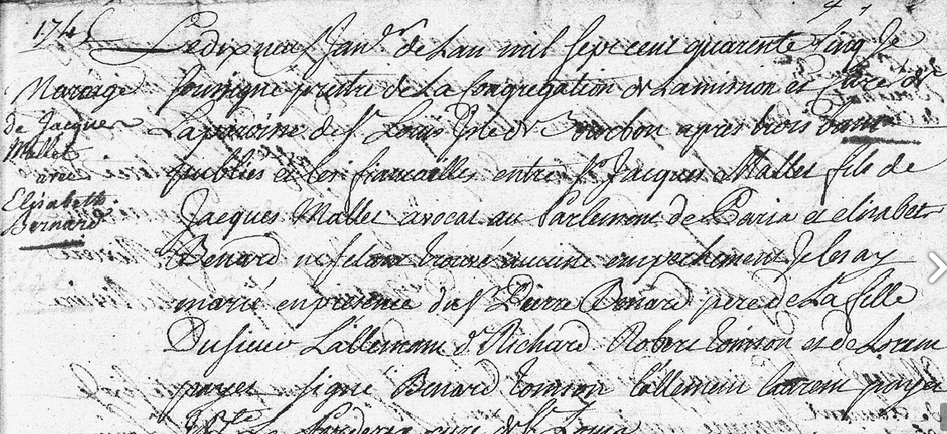 1745
Mariage
de Jacques
Mallet
avec
Elisabeth
Bernard
Le dix neuf Janr de Lan mil sept cent quarente cinq Je
soussigné prêtre de La Congregation de La mission et Curé de
La paroisse de St Louis Isle de Bourbon apres trois bans
publiés et les fiancailles entre Sr Jacques Mallet fils de
Jacques Mallet avocat au Parlement de Paris et elisabet
Benard ne sestant trouvé aucune empechement Je les ay
marié en presence du Sr Pierre Benard pere de La fille
Du sieur Lallemam Richard Robert et de Loran
payet signé Benard Lallemant laurent payet
curé de St Louis